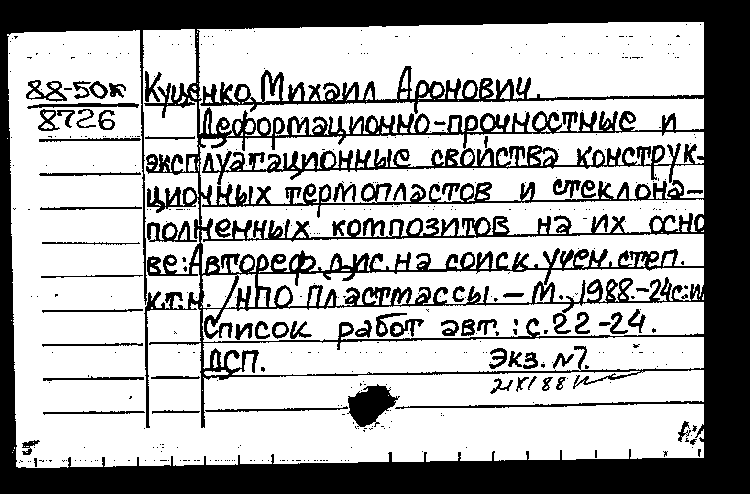 88-50к Куценко, Михаил Аронович.
8726 Деформационно-прочностные и
эксплуатационные свойства конструк-
ционных термопластов и стеклона-
полненных композитов на их осно
ве: Автореф. дис. на соиск. учен. степ.
к.т.н. / НПО Пластмассы. – М., 1988. – 24с: и
Список работ авт.: с. 22-24.
ДСП. Экз. №7.
5